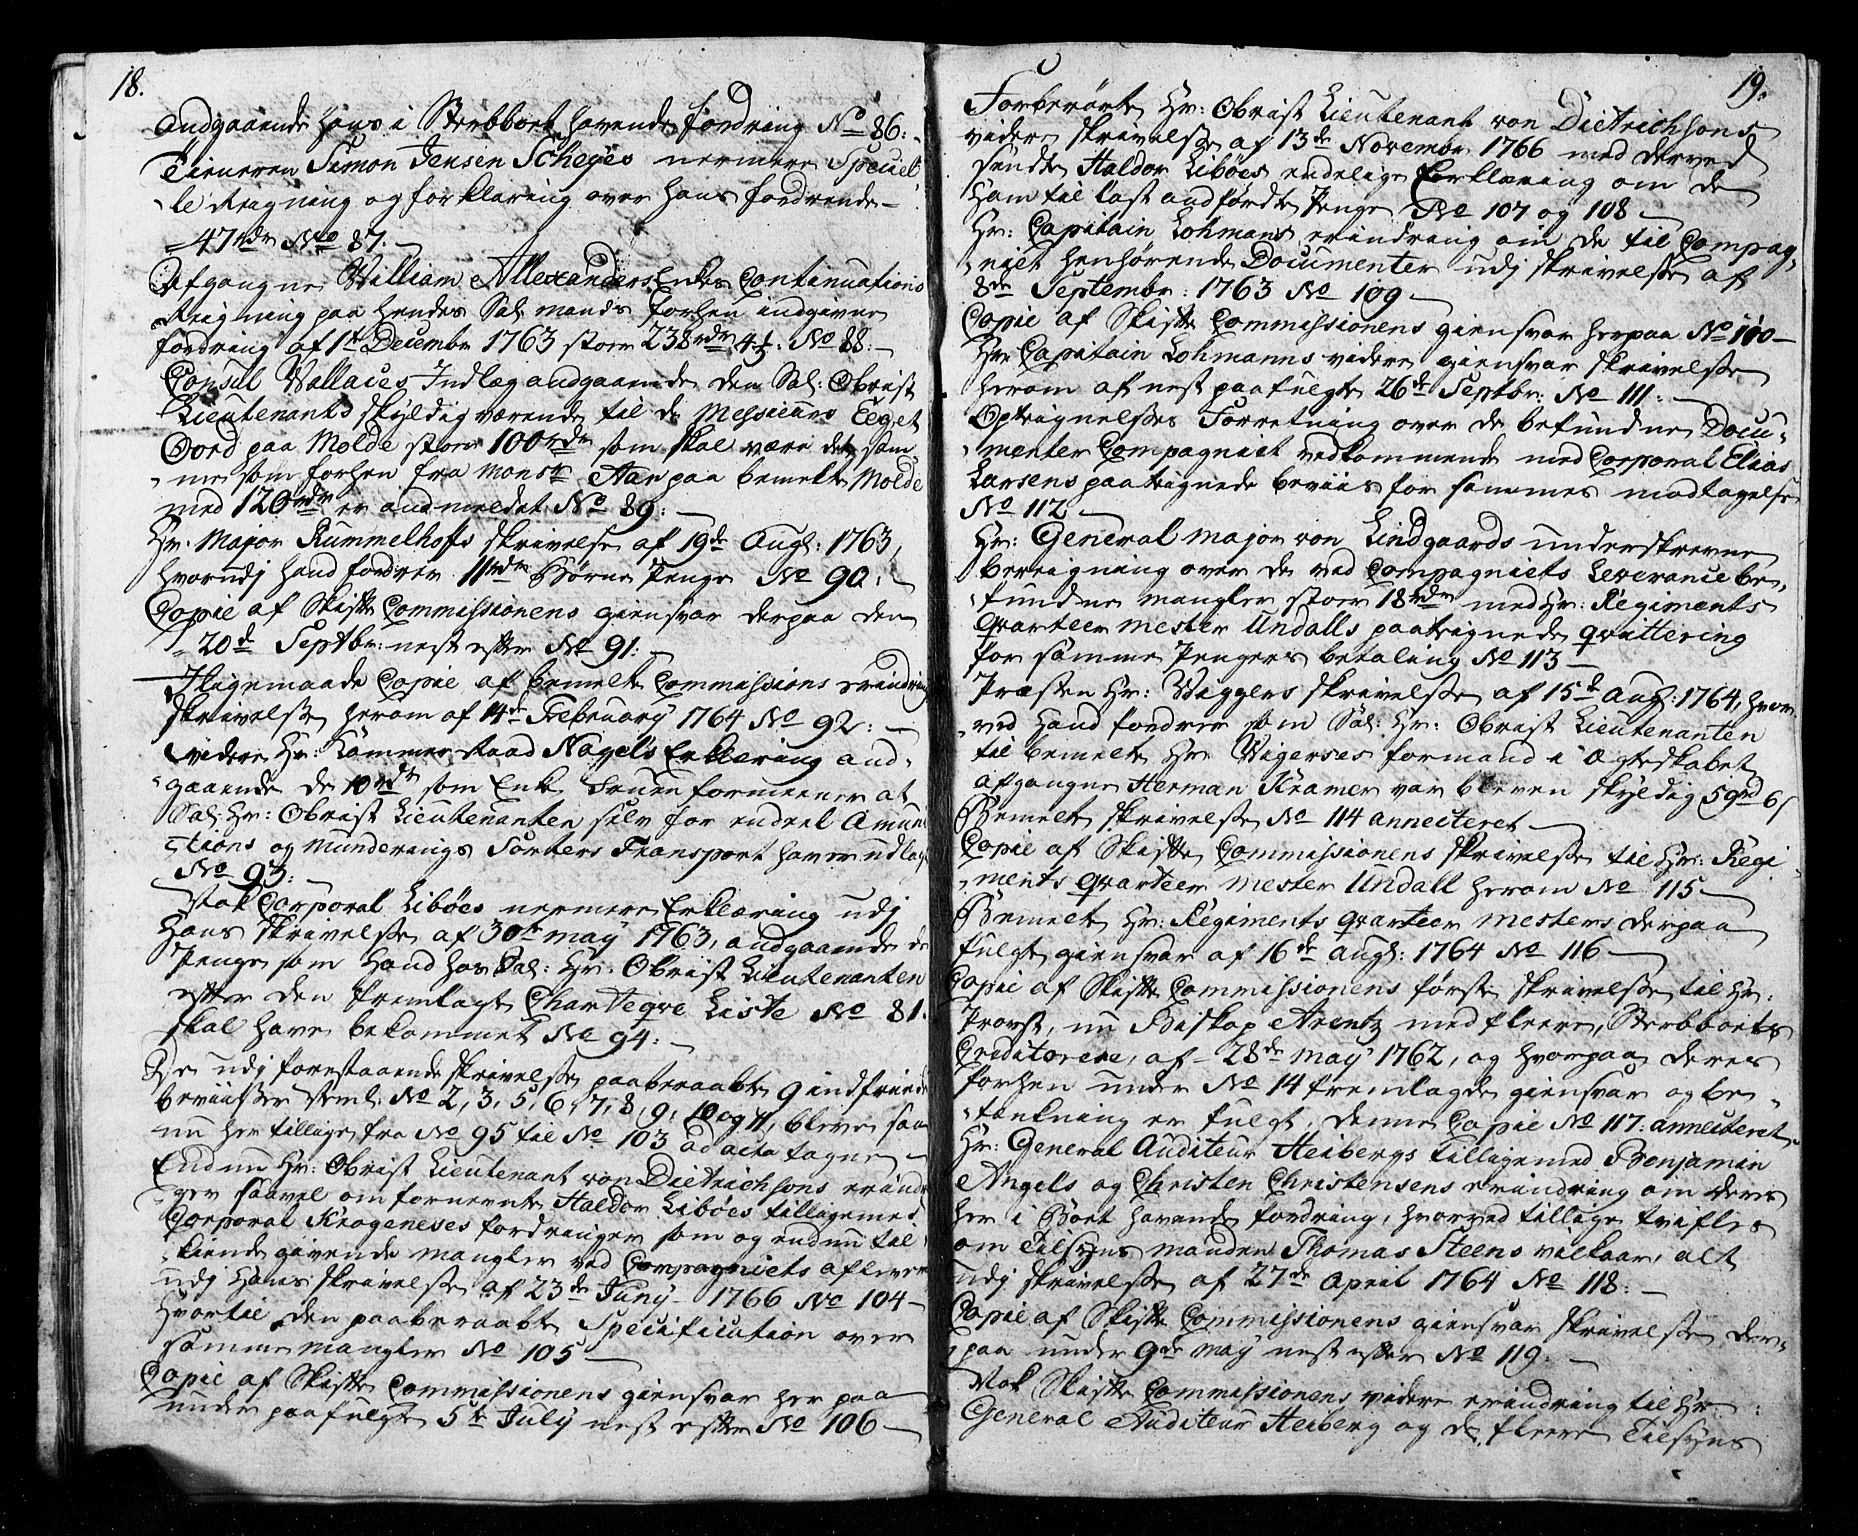 18.
Andgaaende Hans i Sterbboet havende fordring No 86:
Tieneren Simon Jensen Scheyes nermere Speciel-
le Reigning og forklaring over hans fordrende
47 rdr No 87:
Afgangne William Allexanders Enkes Continuations
Reigning paa hendes Sal: mands forhen indgivne
fordring af 1te Decembr 1763 stoer 238 rdr 4½: No 88:
Consul Wallaces Indlæg andgaaende den Sal: Obrist
Lieutenants skyldig værende til de Messieurs Eeget
Oord paa Molde stoer 100 rdr som skal være det sam-
me som forhen fra Monsr Aar paa bemelte Molde
med 120 rdr er andmeldet No 89:
Hr. Major Rummelhoffs skrivelse af 19de Augt: 1763,
hvorudj hand fordrer 11 rdr Børne Penge No 90:
Copie af Skifte Commissionens giensvar derpaa den
20d Septbr: nest efter No 91:
Iligemaade Copie af bemelte Commissions erindrings
skrivelse herom af 14de February 1764 No 92:
videre Hr: Kammer Raad Nagels Erklæring and-
gaaende de 10 rdr som Enke Fruen formeener at
Sal: Hr: Obrist Lieutenanten selv for endeel Amuni-
tions og munderings Sorters Transport haver udlagt
No 93:
Nok Corporal Libøes nermere Erklæring udj
Hans skrivelse af 30te may 1763, andgaaende de
Penge som Hand hos Sal: Hr: Obrist Lieutenanten
efter den fremlagte Charteqve Liste No 81.
skal have bekommet No 94:
De udj forestaaende skrivelse paaberaabte 9 indfriede
beviisser Neml: No 2, 3, 5, 6, 7, 8, 9, 10 og 11, bleve saa
nu her tillige fra No 95 til No 103 ad acta tagne
Endnu Hr: Obrist Lieutenant von Dietrichsons erindrin-
ger saavel om fornevnte Haldor Libøes tillige med
Corporal Krogeneses fordringer som og endnu til-
kiende givende mangler ved Compagniets aflevering
udj Hans skrivelse af 23de Juny 1766 No 104
Hvortil den paaberaabte Specification over
samme mangler No 105
Copie af Skifte Commissionens giensvar her paa
under paafulgte 5te July nest efter No 106
19.
Forberørte Hr: Obrist Lieutenant von Dietrichsons
videre skrivelse af 13de Novembr 1766 med derved
sendte Haldor Libøes endelige Forklæring om de
Ham til last andførdte Penge No 107 og 108
Hr: Capitain Lohmans erindring om de til Compag-
niet henhørende Documenter udj skrivelse af
8de Septembr: 1763 No 109
Copie af Skifte Commissionens giensvar herpaa No 110
Hr: Capitain Lohmanns videre giensvar skrivelse
herom af nest paafulgte 26de Septbr: No 111:
Opteignelses Forretning over de befundne Docu-
menter Compagniet vedkommende med Corporal Elias
Larsens paateignede beviis for sammes modtagelse
No 112
Hr: General Major von Lindgaards underskrevne
bereigning over de ved Compagniets Leverance be-
fundne mangler stoer 18 rdr med Hr: Regiments
Qvarteer mester Undalls paateignede qvittering
for samme Pengers betaling No 113
Præsten Hr: Viggers skrivelse af 15d Aug: 1764, hvor-
ved Hand fordrer som Sal: Hr: Obrist Lieutenanten
til bemelte Hr: Vigerses formand i Ægteskabet
afgangne Herman Kramer var bleven skyldig 59 rd 6 s
Bemelte skrivelse No 114 annecteret
Copie af Skifte Commissionens skrivelse til Hr: Regi-
ments Qvarteer mester Undall herom No 115
Bemelte Hr: Regiments Qvarteer mesters derpaa
fulgte giensvar af 16de Augt: 1764 No 116
Copie af Skifte Commissionens første skrivelse til Hr:
Provst, nu Biskop Arentz med fleere, Sterbboets
Creditorere, af 28de may 1762, og hvorpaa deres
forhen under No 14 fremlagde giensvar og be-
tænkning er fulgt, denne Copie No 117: annecteret
Hr: General Auditeur Heibergs tillige med Benjamin
Angels og Christen Christensens erindring om deres
her i Boet havende fordring, hvorved tillige tvifles
om Tilsyns manden Thomas Steens vilkaar, alt
udj skrivelse af 27de April 1764 No 118:
Copie af Skifte Commissionens giensvar skrivelse der-
paa under 9de may nest efter No 119:
Nok Skifte Commissionens videre erindring til Hr:
General Auditeur Heiberg og de fleere Tilsyns